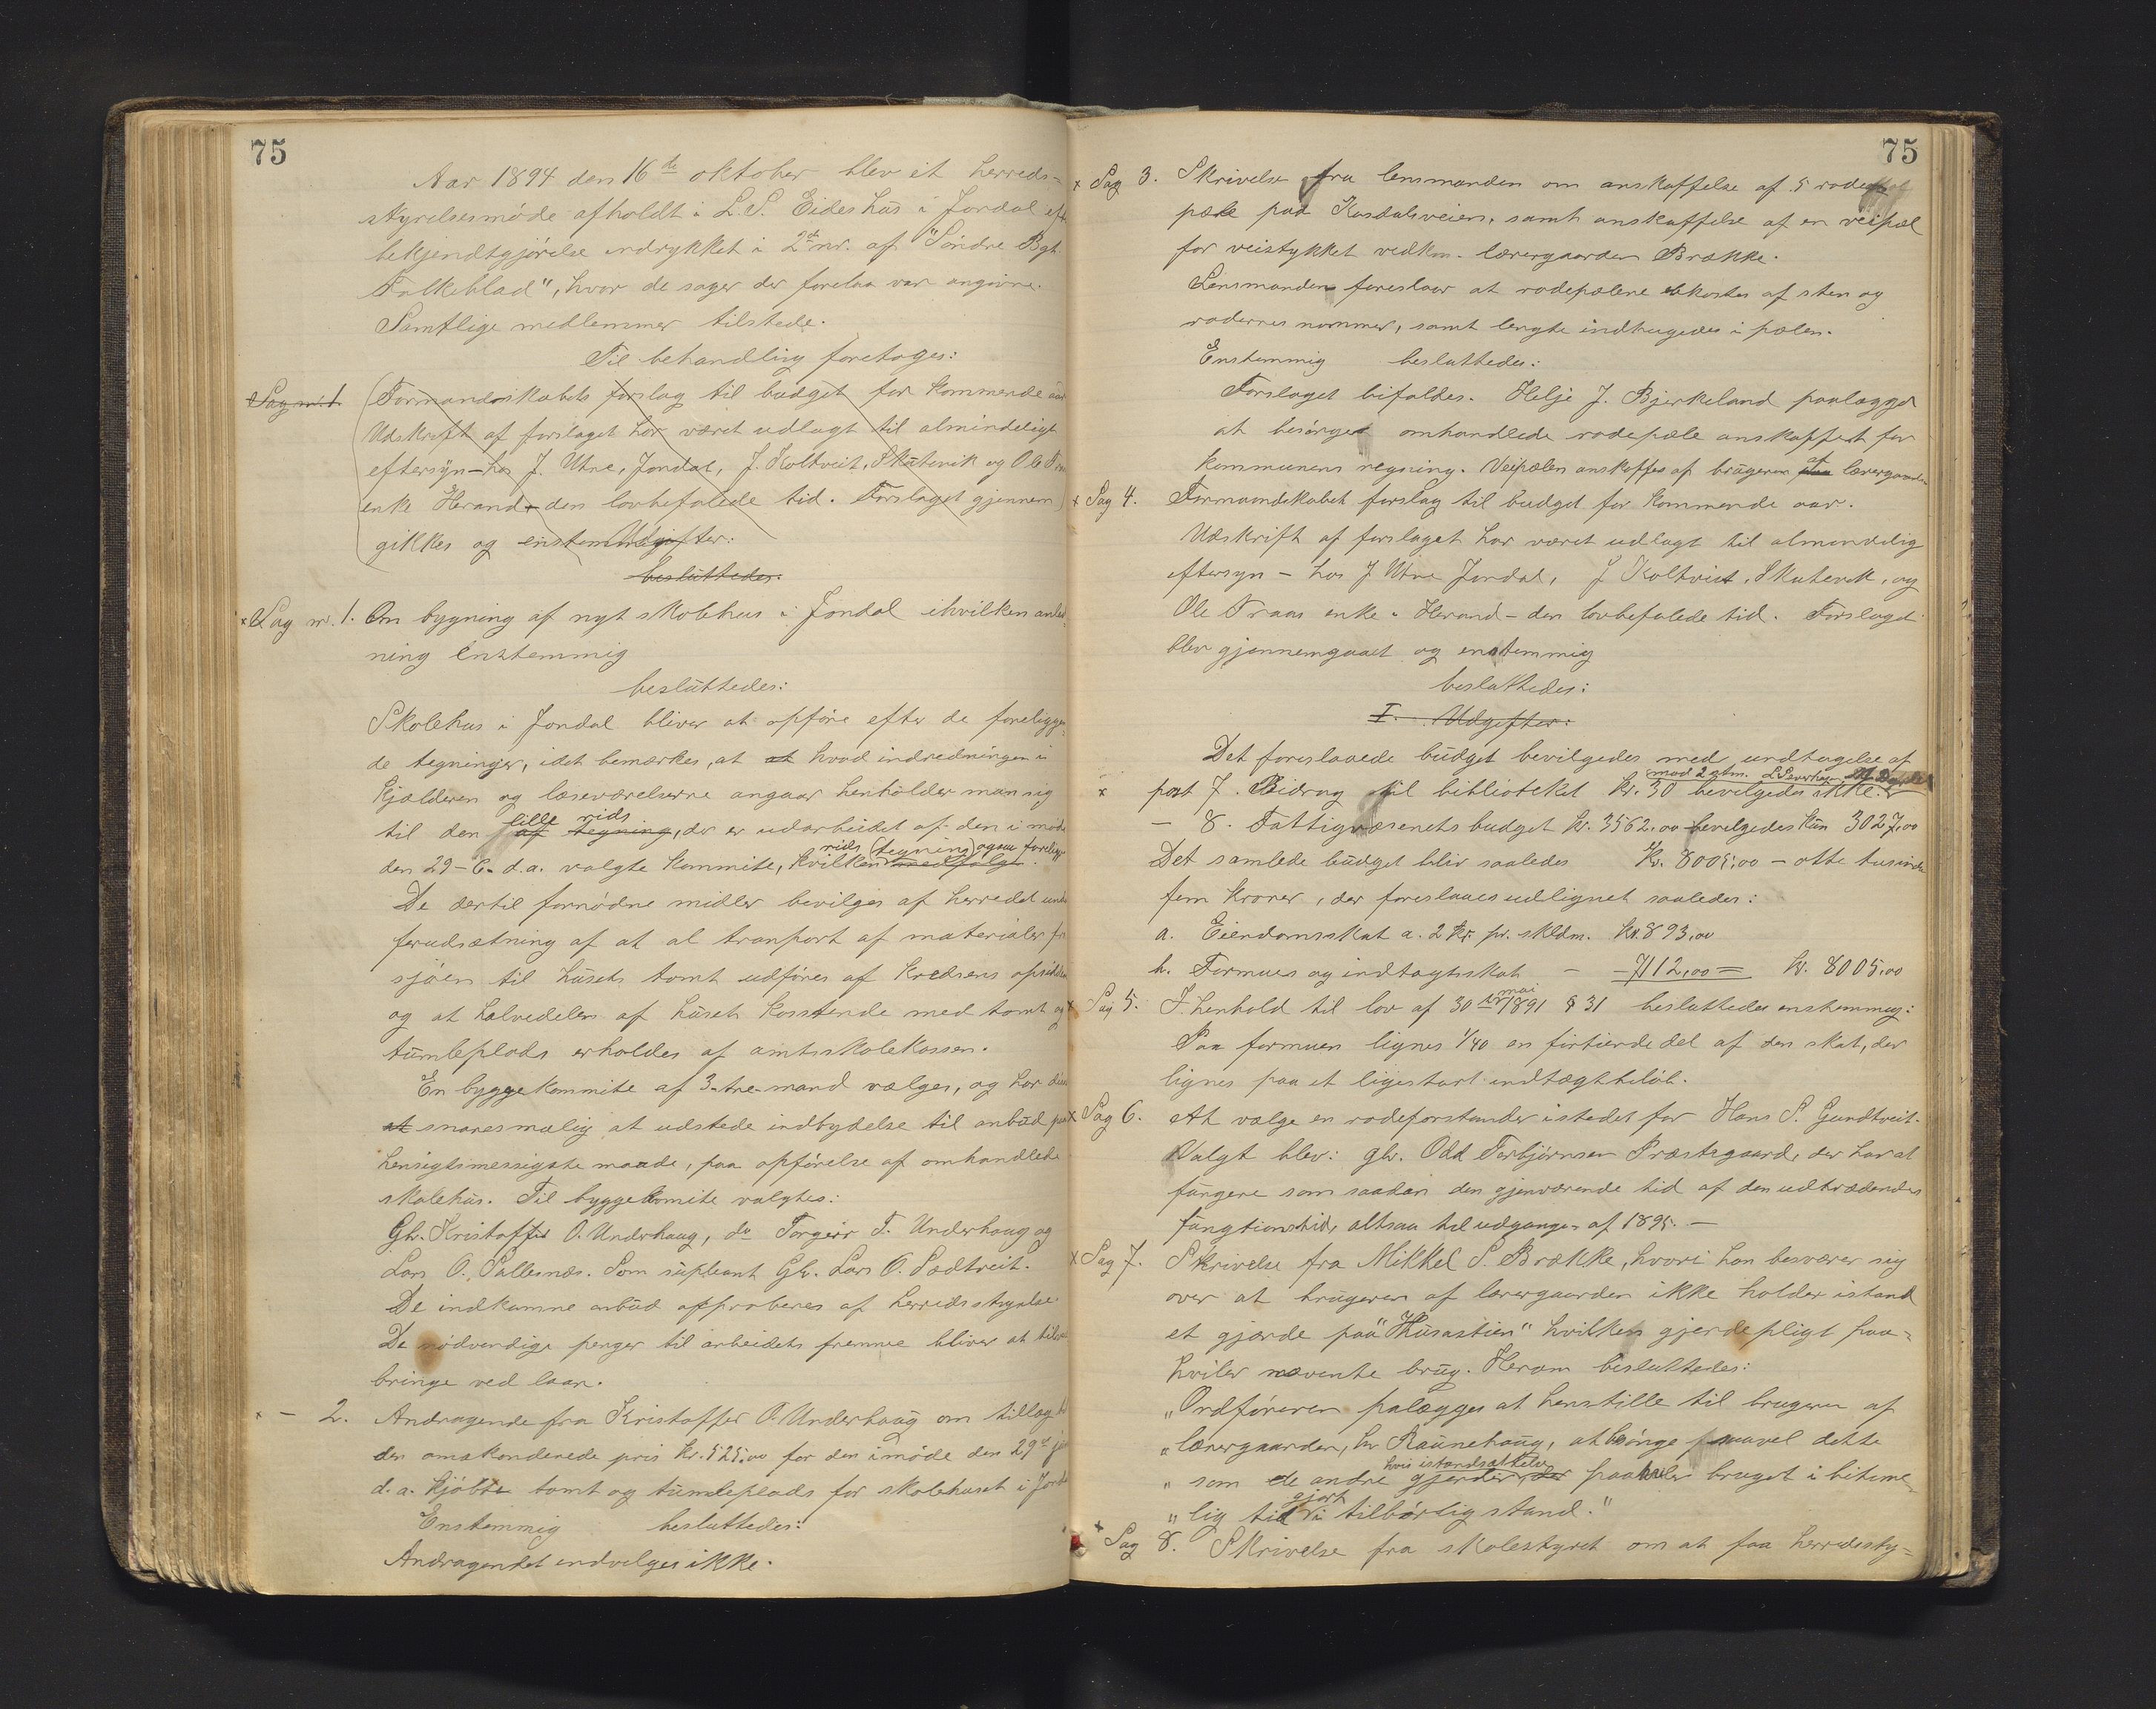 75
Aar 1894 den 16de oktober blev et herreds-
styrelsesmöde afholdt i L. S. Eides hus i Jondal efter
bekjendtgjörelse indrykket i 2de nr. af "Söndre Bgh.
Folkeblad", hvor de sager der forelaa var angivne.
Samtlige medlemmer tilstede.
Til behandling foretages:
Sag nr. 1. Formandskabets forslag til budget for kommende aar
Udskrift af forslaget har været udlagt til almindeligt
eftersyn – hos J. Utne, Jondal, J. Koltveit, Skutevik og Ole Traa
enke Herand – den lovbefalede tid. Forslaget gjennem
gikkes og enstemmig Udgifter:
besluttedes:
Sag nr. 1. Om bygning af nyt skolehus i Jondal ihvilken anled-
ning Enstemmig
besluttedes:
Skolehus i Jondal bliver at opföre efter de foreliggen-
de tegninger, idet bemærkes, at at hvad indredningen i
Kjælderen og læseværelserne angaar henholder man sig
til den lille rids af tegning, der er udarbeidet af den i möde
den 29-6- d.a. valgte kommite, hvilken rids (tegning) ogsaa foreligger medfölge.
De dertil fornødne midler bevilges af herredet under
forudsætning af at al tranport af materialer fra
sjöen til husets tomt udföres af kredsens opsiddere
og at halvedelen af huset kosstende med tomt og
tumleplads erholdes af amtsskolekassen.
En byggekommite af 3-tre mand vælges, og har den
at snaresmælig at udstede indbydelse til anbud paa
hensigtsmessigste maade, paa opförelse af omhandlede
skolehus. Til byggekomite valgtes:
Gbr. Kristoffer O. Underhaug, do Torgeir T. Underhaug og
Lars O. Sallesnæs. Som supleant Gbr. Lars O. Sædtveit.
De indkomne anbud approberes af herredsstyrelse
De nödvendige penger til arbeidets fremme bliver at tilveie
bringe ved laan.
– 2. Andragende fra Kristoffer O. Underhaug om tillæg
den omakorderede pris Kr. 525,00 for den i möde den 29de juni
d.a. kjöbte tomt og tumleplads for skolehuset i Jondal
Enstemmig besluttedes:
Andragendet indvilges ikke.
75
Sag 3. Skrivelse fra lensmanden om anskaffelse af 5 rode
pæle paa Kvsdalsveien, samt anskaffelse af en veipæl
for veistykket vedkm. lærergaarden Brække.
Lensmanden foreslaar at rodepælene bekostes af sten og
rodernes nommer, samt lengte indhugedes i pælen.
Enstemmig besluttedes:
Forslaget bifaldes. Helje J. Bjerkeland paalægges
at besörget omhandlede rodepæle anskaffet for
kommunens regning. Veipælen anskaffes af brugeren af lærergaarden
Sag 4. Formandskabet forslag til budget for kommende aar.
Udskrift af forslaget har været udlagt til almindelig
eftersyn – hos J Utne Jondal, J Koltveit, Skutevik, og
Ole Traas enke i Herand – den lovbefalede tid. Forslaget
blev gjennemgaaet og enstemmig
besluttedes:
I. Udgifter:
Det foreslaaede budget bevilgedes med undtagelse af
post 7. Bidrag til biblioteket Kr. 30 bevilgedes ikke. mod 2 stm.
– 8. Fattigvæsenets budget Kr. 3562,00 bevilgedes kun 3027,00
Det samlede budget bliv saaledes Kr. 8005,00 – otte tusinde
fem kroner, der foreslaaes udlignet saaledes:
a. Eiendomsskat a. 2 kr. pr. skldm. Kr. 893,00
b. Formues og indtægtsskat – 7112,00 = Kr. 8005,00
Sag 5. I henhold til lov af 30 mai 1891 § 31 besluttedes enstemmig:
Paa formuen lignes 1/40 en firtiende del af den skat, der
lignes paa et ligestort indtægtbelöb.
Sag 6. At vælge en rodeforstander istedet for Hans S. Gundtveit.
Valgt blev: gbr. Odd Torbjörnsen Præstegaard, der har at
fungere som saadan den gjenværende tid af den udtrædendes
fungtionstid, altsaa til udgangen af 1895. –
Sag 7. Skrivelse fra Mikkel S. Brække, hvori han besværer sig
over at brugeren af lærergaarden ikke holder istand
et gjærde paa "Husastien" hvilken gjerdepligt paa-
hviler nævente brug. Herom besluttedes:
"Ordföreren palægges at henstille til brugeren af
"lærergaarden, hr Raunehaug, at besörge saavel dette
" som de andre gjerder, hvis istandsættelse der paahviler bruget i bitime-
" lig tid gjort i tilbörlig stand."
Sag 8. Skrivelse fra skolestyret om at faa herredssty-